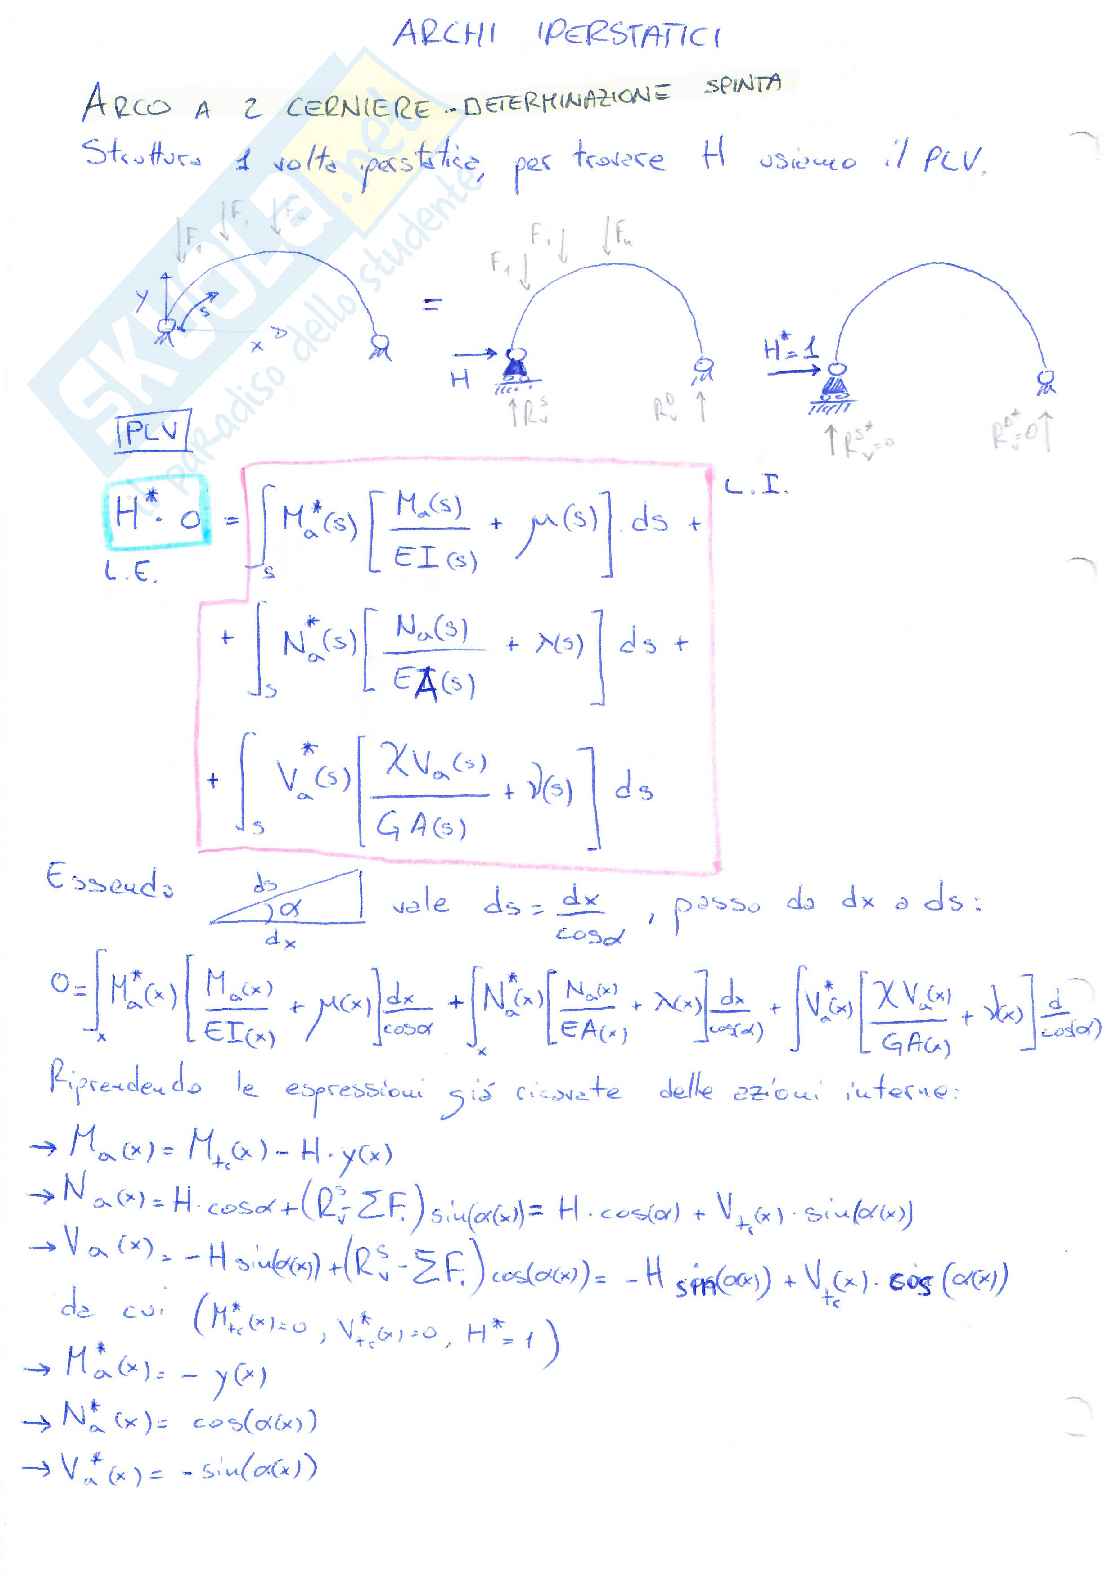 ARCHI IPERSTATICI
ARCO A 2 CERNIERE - DETERMINAZIONE SPINTA
Struttura 1 volta iperstatica, per trovare H usiamo il PLV.
F₁ F₁ Fₙ
Y s x
=
F₁ F₁ Fₙ
H R_v^S R_v^D
H*=1
R_v^S*=0 R_v^D*=0
SKUOLA.net
il paradiso dello studente
PLV
H*·0 = ∫_s M_a*(s) [ M_a(s)/EI(s) + μ(s) ] ds + L.I.
L.E.
+ ∫_s N_a*(s) [ N_a(s)/EA(s) + λ(s) ] ds +
+ ∫_s V_a*(s) [ χV_a(s)/GA(s) + ν(s) ] ds
Essendo ds α dx vale ds = dx/cosα , passo da dx a ds:
0 = ∫_x M_a*(x) [ M_a(x)/EI(x) + μ(x) ] dx/cosα + ∫_x N_a*(x) [ N_a(x)/EA(x) + λ(x) ] dx/cos(α) + ∫ V_a*(x) [ χV_a(x)/GA(x) + ν(x) ] d/cos(α)
Riprendendo le espressioni già ricavate delle azioni interne:
→ M_a(x) = M_tc(x) - H·y(x)
→ N_a(x) = H·cosα + (R_v^S - ΣF_i) sin(α(x)) = H·cos(α) + V_tc(x)·sin(α(x))
→ V_a(x) = -H sin(α(x)) + (R_v^S - ΣF_i) cos(α(x)) = -H sin(α(x)) + V_tc(x)·cos(α(x))
da cui (M*_tc(x)=0, V*_tc(x)=0, H*=1)
→ M_a*(x) = - y(x)
→ N_a*(x) = cos(α(x))
→ V_a*(x) = -sin(α(x))